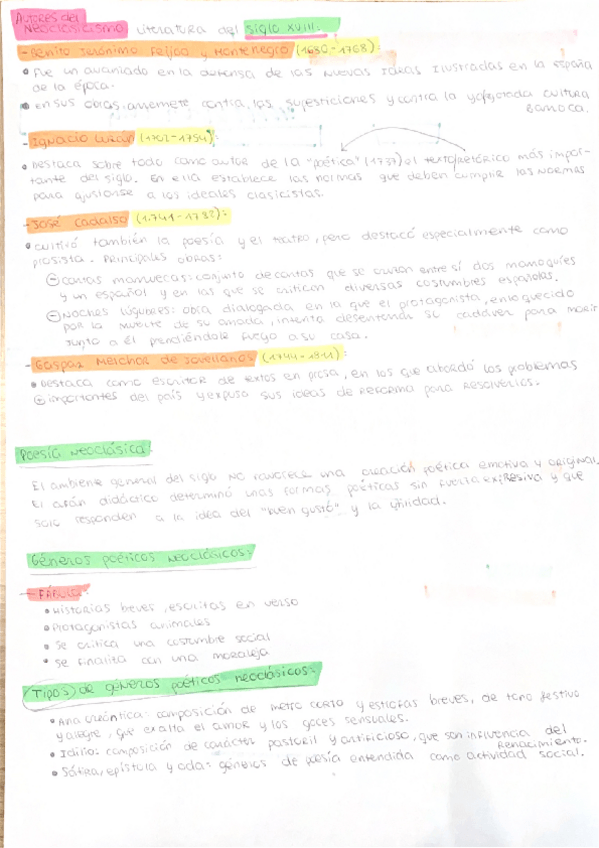 Autores del
Neoclasicismo Literatura del siglo XVIII:
- Benito Jerónimo Feijoo y Montenegro (1680-1768):
• Fue un avanzado en la defensa de las nuevas ideas ilustradas en la españa
de la época.
• En sus obras, arremete contra las supesticiones y contra la cultura
barroca.
- Ignacio Luzán (1702-1754):
• Destaca sobre todo como autor de la "poética" (1737) el texto teórico más impor-
tante del siglo. En ella establece las normas que deben cumplir las normas
para ajustarse a los ideales clasicistas.
- José Cadalso (1741-1782):
• Cultivó también la poesía y el teatro, pero destacó especialmente como
prosista. Principales obras:
- Cartas marruecas: conjunto de cartas que se cruzan entre sí dos marroquíes
y un español y en las que se critican diversas costumbres españolas.
- Noches lúgubres: obra dialogada en la que el protagonista, enloquecido
por la muerte de su amada, intenta desenterrar su cadáver para morir
junto a él prendiéndole fuego a su casa.
- Gaspar Melchor de Jovellanos (1744-1811):
• Destaca como escritor de textos en prosa, en los que abordó los problemas
+ importantes del país y expuso sus ideas de reforma para resolverlos.
Poesía neoclásica:
El ambiente general del siglo NO favorece una creación poética emotiva y original.
El afán didáctico determinó unas formas poéticas sin fuerza expresiva y que
solo responden a la idea del "buen gusto" y la utilidad.
Géneros poéticos neoclásicos:
- FÁBULA:
• Historias breves, escritas en verso
• Protagonistas animales
• Se critica una costumbre social
• Se finaliza con una moraleja
(Tipos) de géneros poéticos neoclásicos:
• Anacreóntica: composición de metro corto y estrofas breves, de tono festivo
y alegre, que exalta el amor y los goces sensuales.
• Idilio: composición de carácter pastoril y artificioso, que son influencia del
Renacimiento.
• Sátira, epístola y odas: géneros de poesía entendida como actividad social.